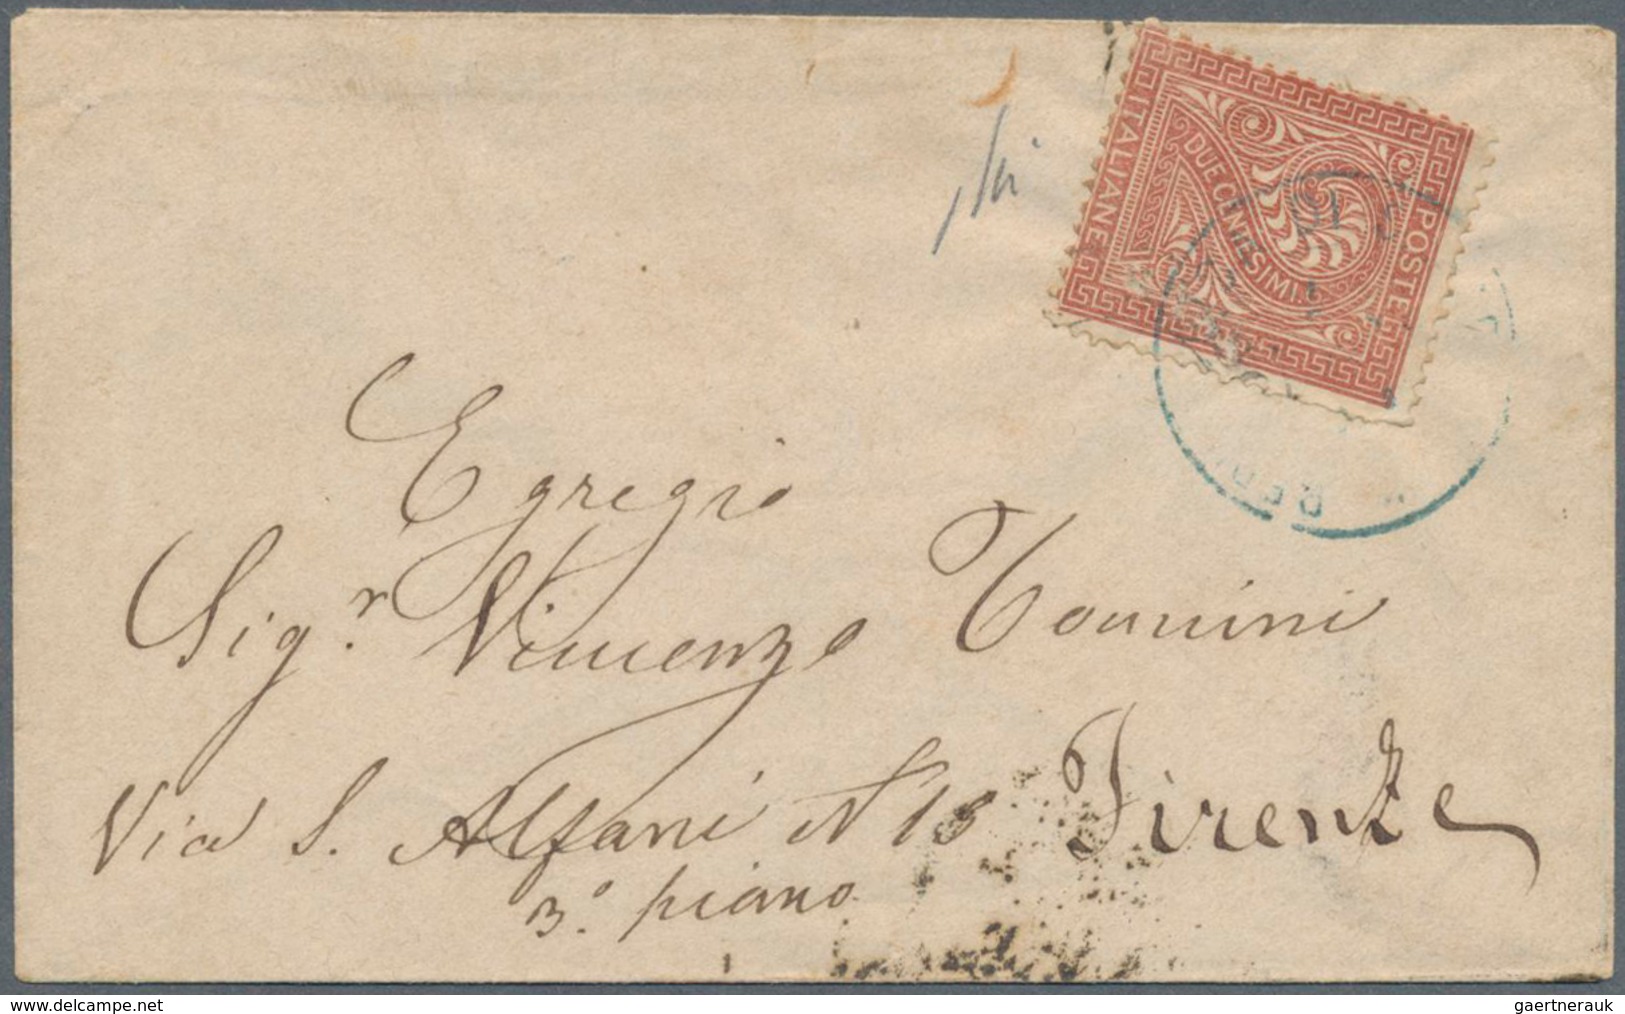 POSTE
ITALIANE
DUE CENTESIMI
Egregio
Sig.r Vincenzo Tounini
Via S. Alfani N 18 Firenze
3.° piano
www.delcampe.net
gaertnerauk